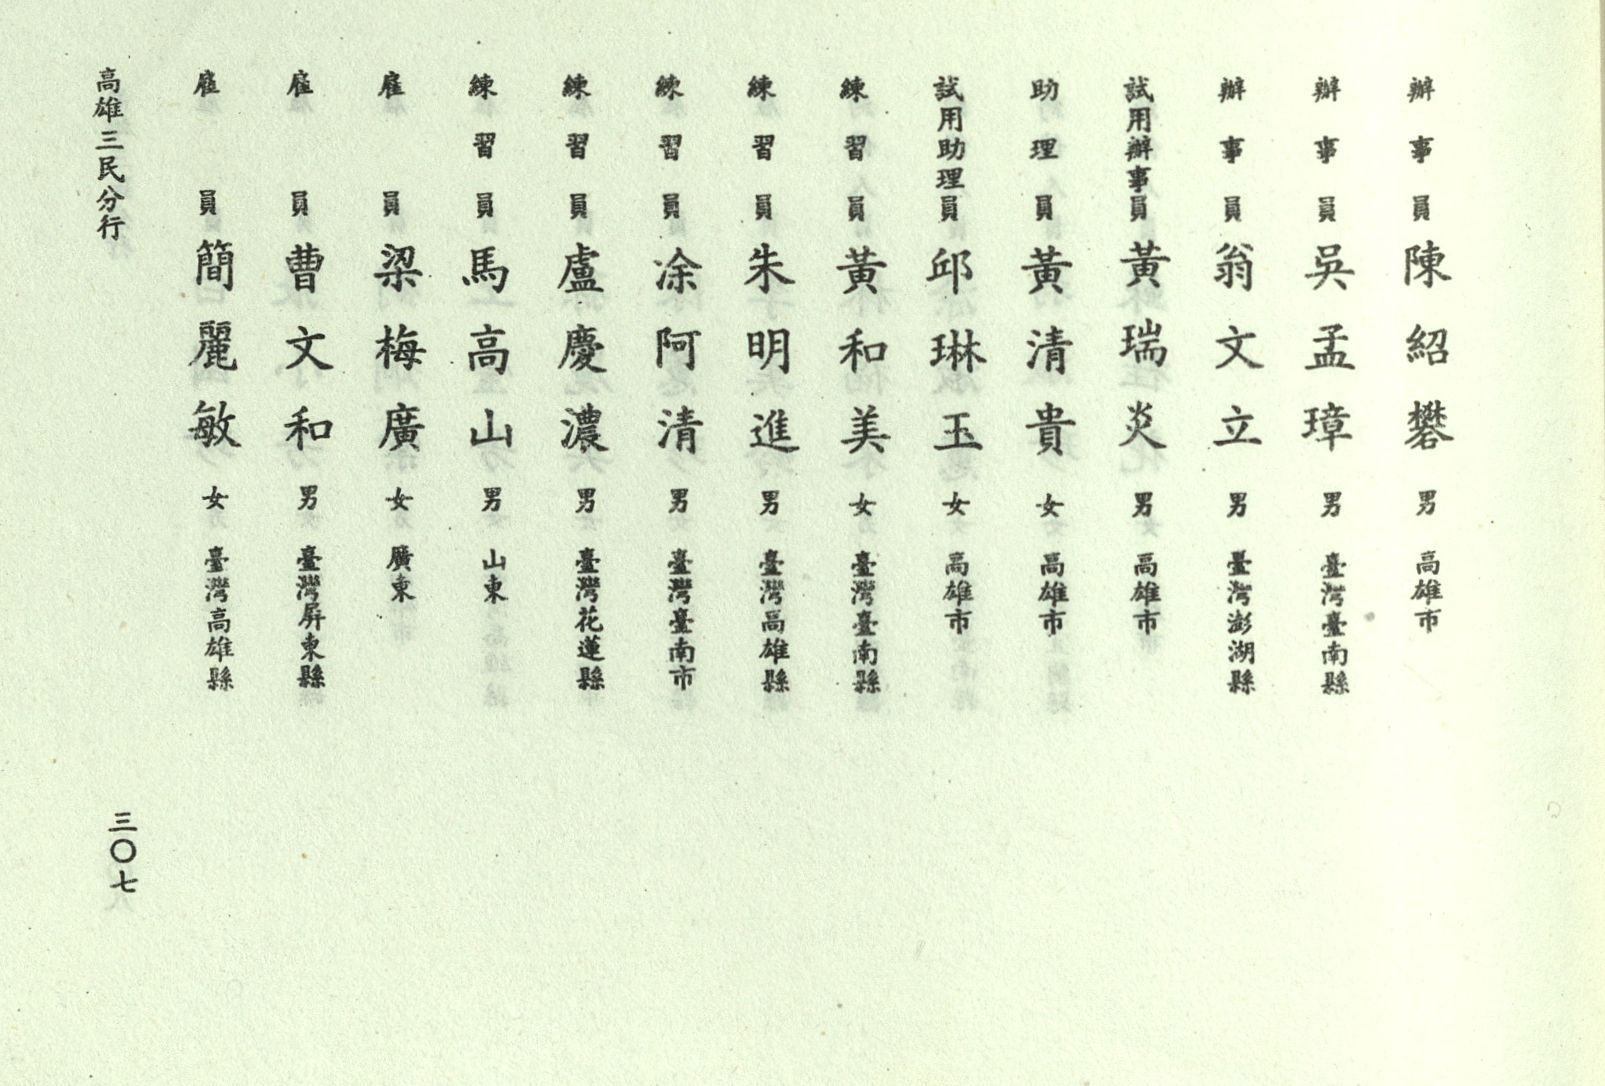 辦事員 陳紹礬 男 高雄市
辦事員 吳孟璋 男 臺灣臺南縣
辦事員 翁文立 男 臺灣澎湖縣
試用辦事員 黃瑞炎 男 高雄市
助理員 黃清貴 女 高雄市
試用助理員 邱琳玉 女 高雄市
練習員 黃和美 女 臺灣臺南縣
練習員 朱明進 男 臺灣高雄縣
練習員 凃阿清 男 臺灣臺南市
練習員 盧慶濃 男 臺灣花蓮縣
練習員 馬高山 男 山東
雇員 梁梅廣 女 廣東
雇員 曹文和 男 臺灣屏東縣
雇員 簡麗敏 女 臺灣高雄縣
高雄三民分行
三〇七